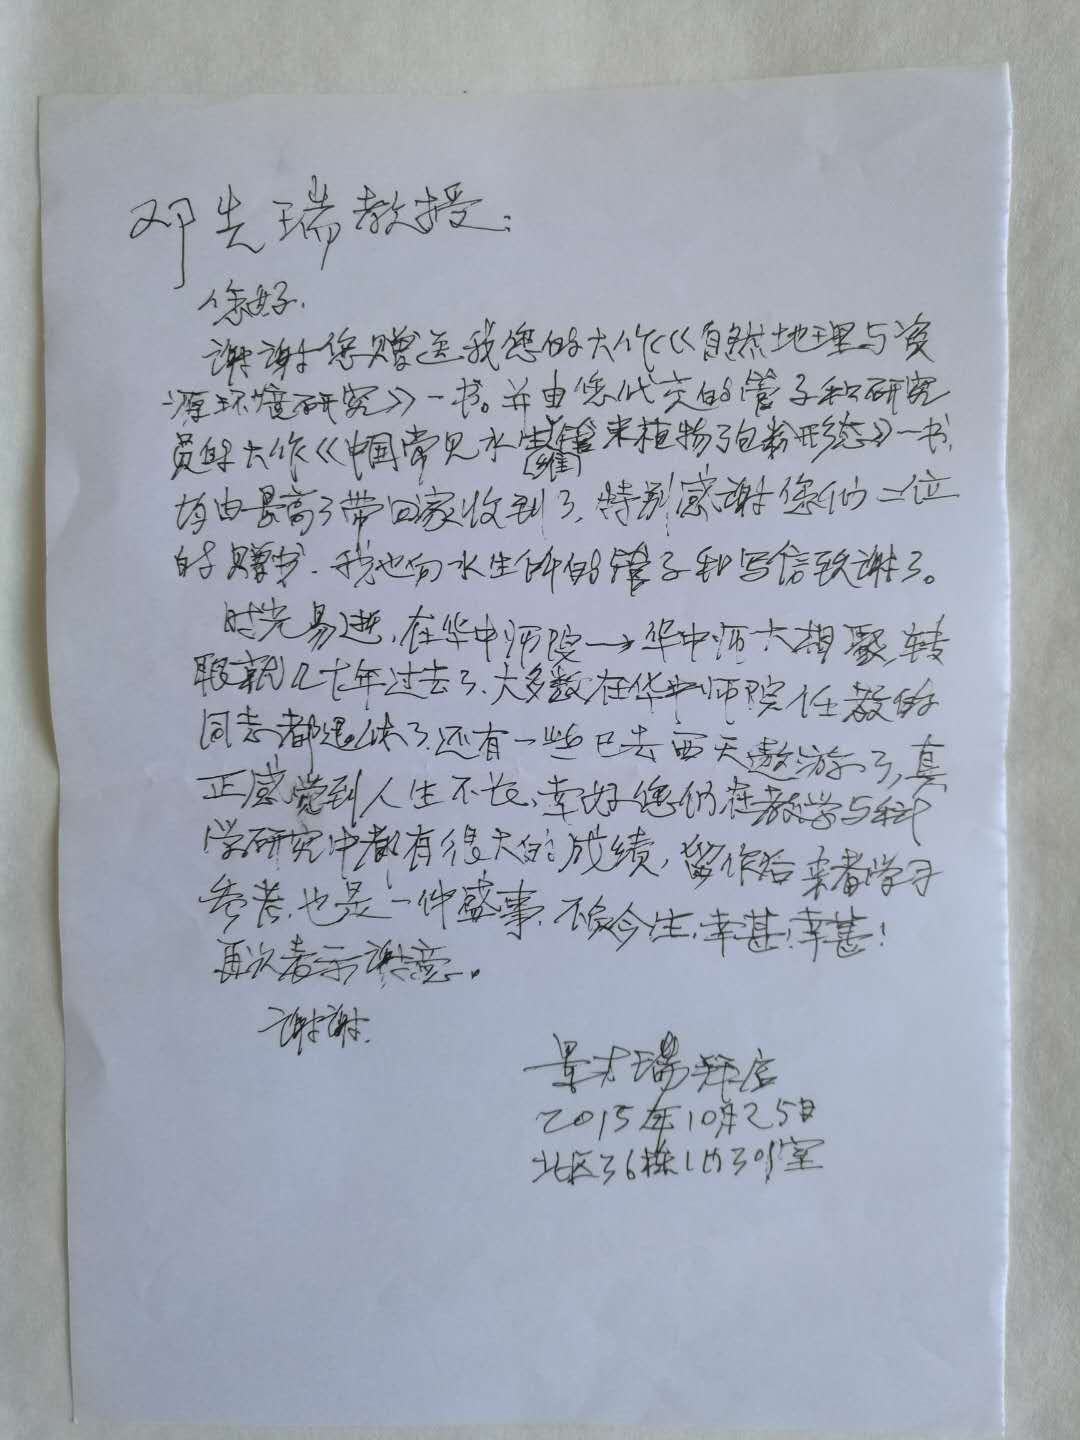 邓先瑞教授：
您好.
谢谢您赠送我您的大作《自然地理与资
源环境研究》一书。并由您代交的管子和研究
员的大作《中国常见水生维管束植物孢粉形态》一书,
均由景高了带回家收到了, 特别感谢您们二位
的赠书. 我也向水生所的管子和写信致谢了。
时光易逝, 在华中师院→华中师大相聚, 转
眼就几十年过去了, 大多数在华中师院任教的
同志都退休了, 还有一些已去西天遨游了, 真
正感觉到人生不长, 幸好您们在教学与科
学研究中都有很大的成绩, 留作后来者学习
参考, 也是一件盛事, 不负今生, 幸甚! 幸甚!
再次表示谢意。
谢谢.
景才瑞拜启
2015年10月25日
北区36栋1门301室